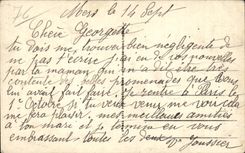 Mers le 14 Sept
Chère Georgette
tu dois me trouver bien négligente de
ne pas t'écrire j'ai eu de tes nouvelles
par ta maman qui m'a dit être très
contente des promenades que vous
lui avait fait faire. je rentre à Paris le
1er Octobre si tu veux venir me voir cela
me fera plaisir, mes meilleures amitiés
à ton mari et je termine en vous
embrassant toutes les deux